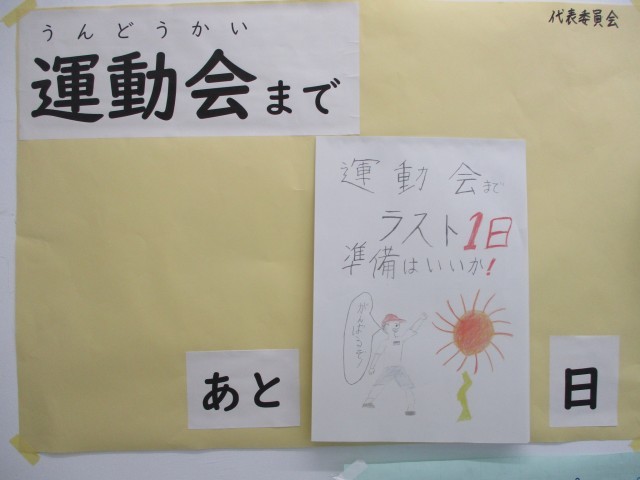 代表委員会
うんどうかい
運動会まで
運動会まで
ラスト1日
準備はいいか!
がんばるぞ
あと
日